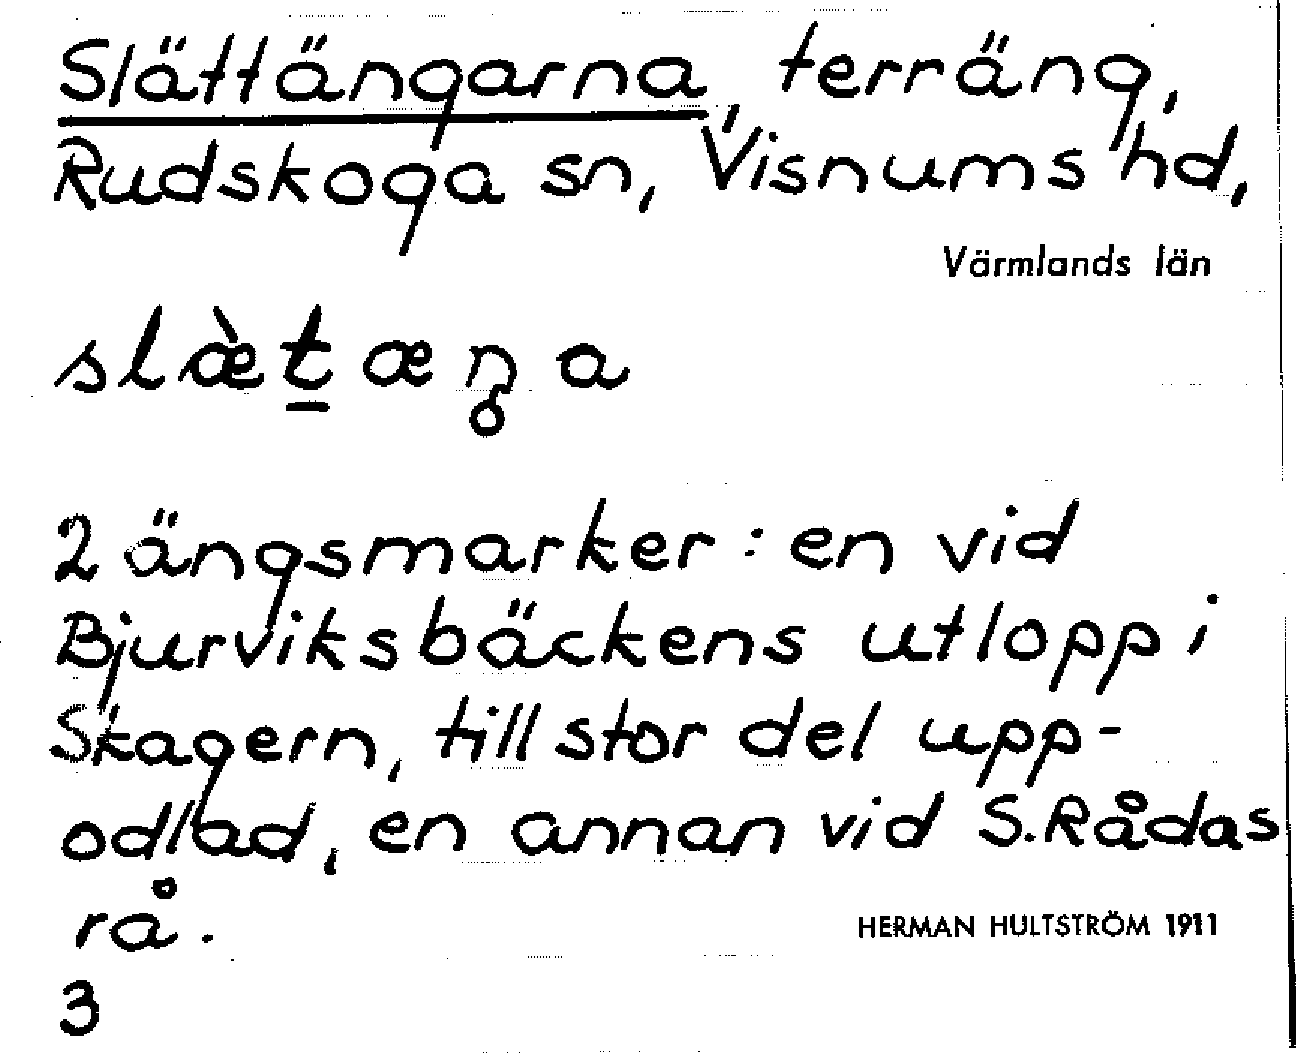 Slättängarna, terräng,
Rudskoga sn, Visnums hd,
Värmlands län
slæ̀t̠æŋa
2 ängsmarker: en vid
Bjurviksbäckens utlopp i
Skagern, till stor del upp-
odlad, en annan vid S. Rådas
rå.
HERMAN HULTSTRÖM 1911
3